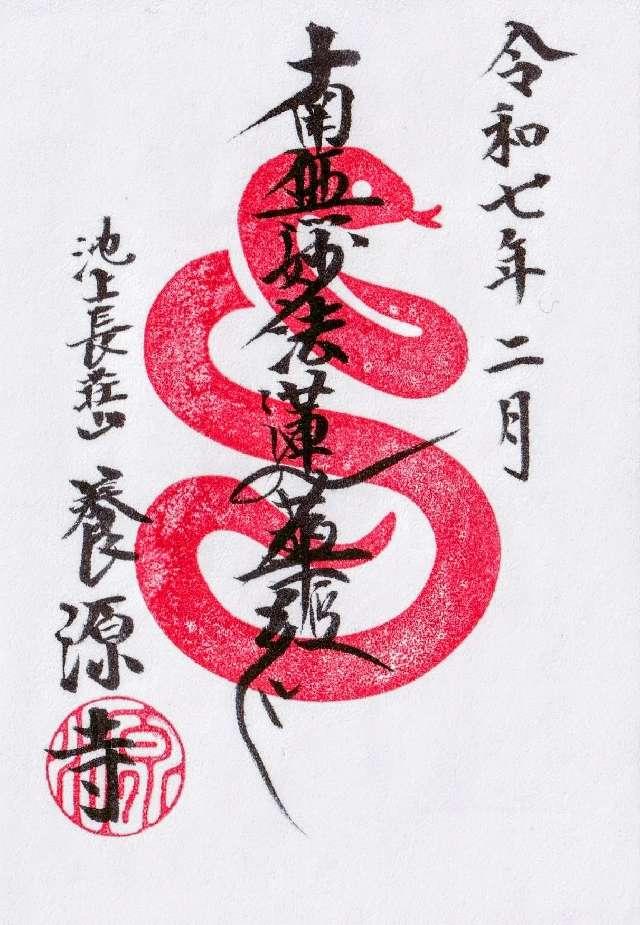 令和七年 二月
南無妙法蓮華経
池上長荘山
養源寺